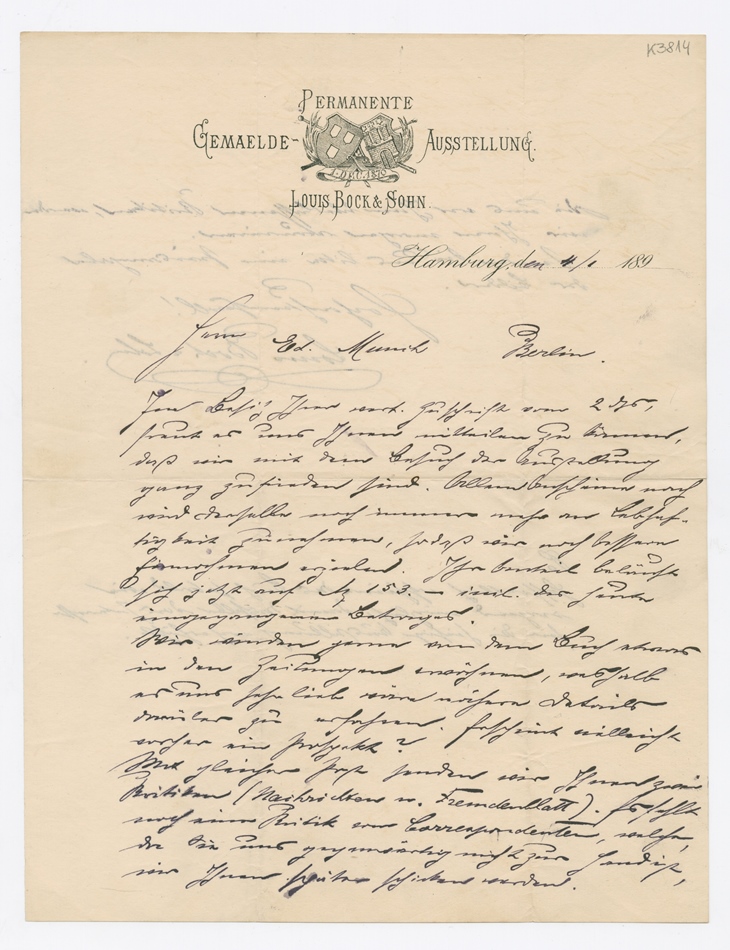 K3814
PERMANENTE
GEMAELDE- AUSSTELLUNG.
1. DEC. 1870
LOUIS BOCK & SOHN.
Hamburg, den 4/1 189
Herrn Ed. Munch Berlin.
Im Besitz Ihrer wert. Zuschrift vom 2 ds,
freut es uns Ihnen mitteilen zu können,
daß wir mit dem Besuch der Ausstellung
ganz zufrieden sind. Allem Anscheine nach
wird derselbe noch immer mehr an Lebhaf-
tigkeit zunehmen, sodaß wir noch bessere
Einnahmen erzielen. Ihr Anteil beläuft
sich jetzt auf M 153. – incl. des heute
eingegangenen Betrages.
Wir würden gerne von dem Buch etwas
in den Zeitungen erwähnen, weshalb
es uns sehr lieb wäre nähere Details
darüber zu erfahren. Erscheint vielleicht
vorher ein Prospekt?
Mit gleicher Post senden wir Ihnen zwei
Kritiken (Nachrichten u. Fremdenblatt). Es fehlt
noch eine Kritik vom Correspondenten, welche,
da sie uns gegenwärtig nicht zur Hand ist,
wir Ihnen später schicken werden.